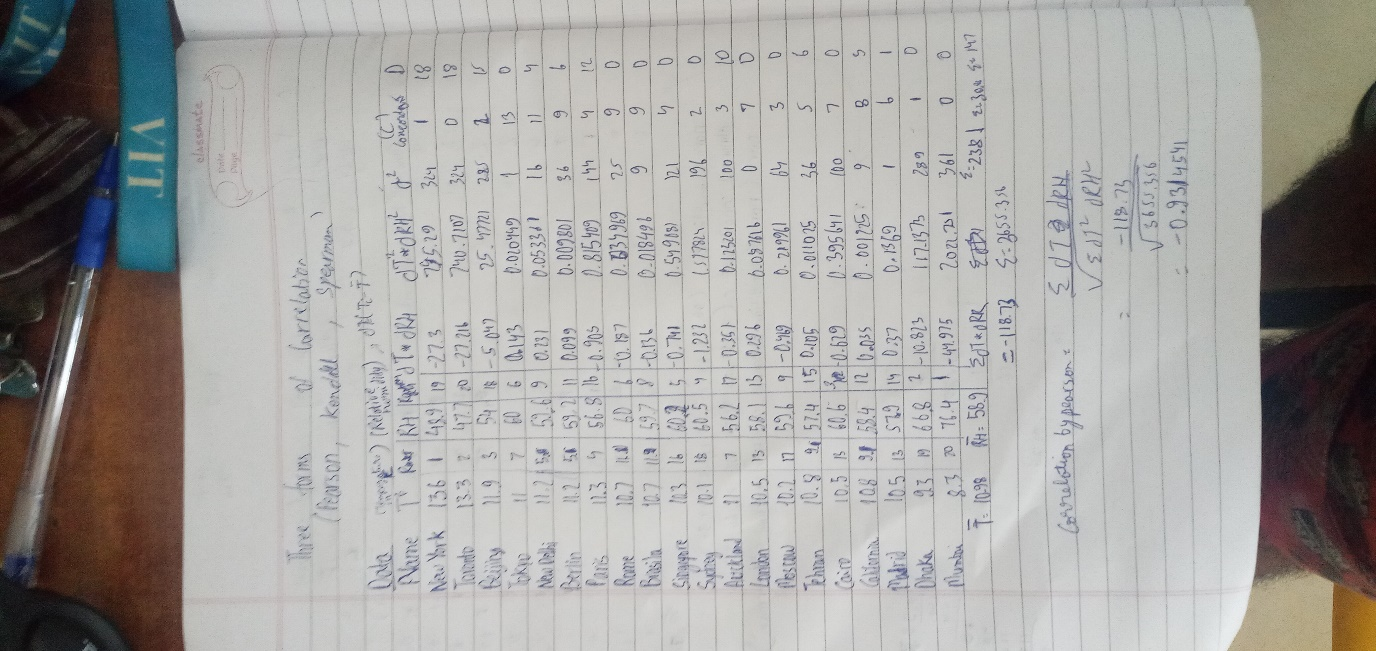 classmate
Date
Page
VIT
VIT
Three forms of Correlation
(Pearson, Kendall, Spearman)
Data (Relative humidity)
Name T RH dT*dRH dT²*dRH² d² (C) Concordant D
New York 13.6 1 48.9 19 -27.3 745.29 324 1 18
Toronto 13.3 2 47.7 20 -27.216 740.7107 324 0 18
Beijing 11.9 3 54 18 -5.047 25.47721 225 2 15
Tokyo 11 7 60 6 0.143 0.020449 1 13 0
New Delhi 11.2 5 59.6 9 0.231 0.053361 16 11 4
Berlin 11.2 5 59.2 11 0.099 0.009801 36 9 6
Paris 11.3 4 56.8 16 -0.903 0.815409 144 4 12
Rome 10.7 11 60 6 -0.187 0.034969 25 9 0
Brasilia 10.7 11 59.7 8 -0.136 0.018496 9 9 0
Singapore 10.3 16 60.8 5 -0.741 0.549081 121 4 0
Sydney 10.1 18 60.5 4 -1.232 1.517824 196 2 0
Auckland 11 7 56.2 17 -0.351 0.123201 100 3 10
London 10.5 13 58.1 13 0.296 0.087616 0 7 0
Moscow 10.2 17 59.6 9 -0.469 0.219961 64 3 0
Tehran 10.8 9 57.4 15 0.105 0.011025 36 5 6
Cairo 10.5 13 60.6 3 -0.629 0.395641 100 7 0
California 10.8 9 58.4 12 0.035 0.001225 9 8 5
Madrid 10.5 13 57.9 14 0.37 0.1369 1 6 1
Dhaka 9.3 19 66.8 2 -10.823 117.1373 289 1 0
Mumbai 8.3 20 76.4 1 -44.975 2022.751 361 0 0
T̄ = 10.98 RH = 58.9 ΣdT*dRH Σ=2381 Σ=147
= -118.73 Σ=3655.356
Correlation by pearson = Σ dT * dRH
√Σ dT² dRH²
= -118.73
√3655.356
= -0.9314541